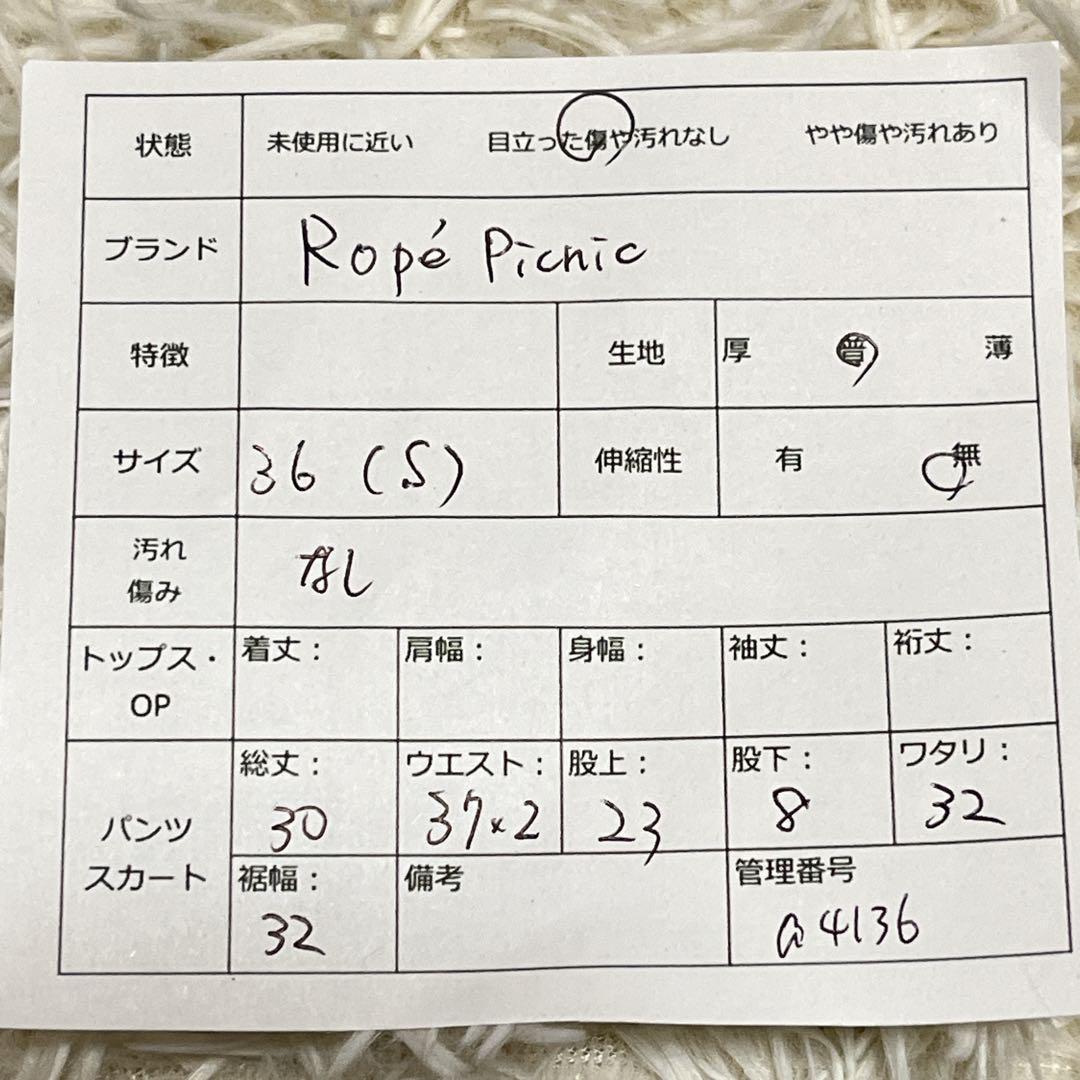 状態 未使用に近い 目立った傷や汚れなし やや傷や汚れあり
ブランド Ropé Picnic
特徴 生地 厚 普 薄
サイズ 36 (S) 伸縮性 有 無
汚れ
傷み
なし
トップス・
OP
着丈： 肩幅： 身幅： 袖丈： 裄丈：
パンツ
スカート
総丈： ウエスト： 股上： 股下： ワタリ：
30 37×2 23 8 32
裾幅： 備考 管理番号
32 a4136